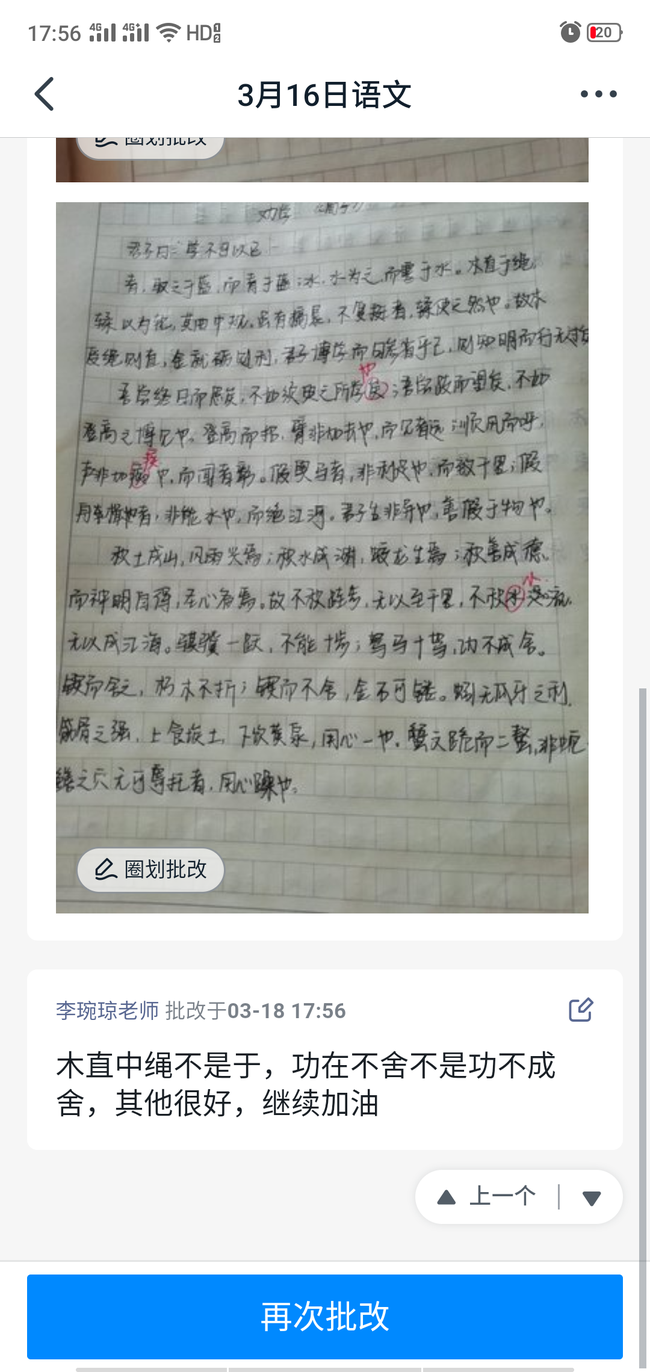 17:56 4G 4G+ HD 20
3月16日语文
圈划批改
劝学
君子曰：学不可以已
青，取之于蓝，而青于蓝；冰，水为之，而寒于水。木直于绳
輮以为轮，其曲中规，虽有槁暴，不复挺者，輮使之然也。故木
受绳则直，金就砺则利，君子博学而日参省乎己，则知明而行无过矣
也
吾尝终日而思矣，不如须臾之所学矣；吾尝跂而望矣，不如
登高之博见也。登高而招，臂非加长也，而见者远；顺风而呼，
疾
声非加也，而闻者彰。假舆马者，非利足也，而致千里；假
舟楫者，非能水也，而绝江河。君子生非异也，善假于物也。
积土成山，风雨兴焉；积水成渊，蛟龙生焉；积善成德，
而神明自得，圣心备焉。故不积跬步，无以至千里，不积流，
无以成江海。骐骥一跃，不能十步；驽马十驾，功不成舍。
锲而舍之，朽木不折；锲而不舍，金石可镂。蚓无爪牙之利，
筋骨之强，上食埃土，下饮黄泉，用心一也。蟹六跪而二螯，非蛇
鳝之穴无可寄托者，用心躁也。
圈划批改
李琬琼老师 批改于03-18 17:56
木直中绳不是于，功在不舍不是功不成
舍，其他很好，继续加油
上一个
再次批改